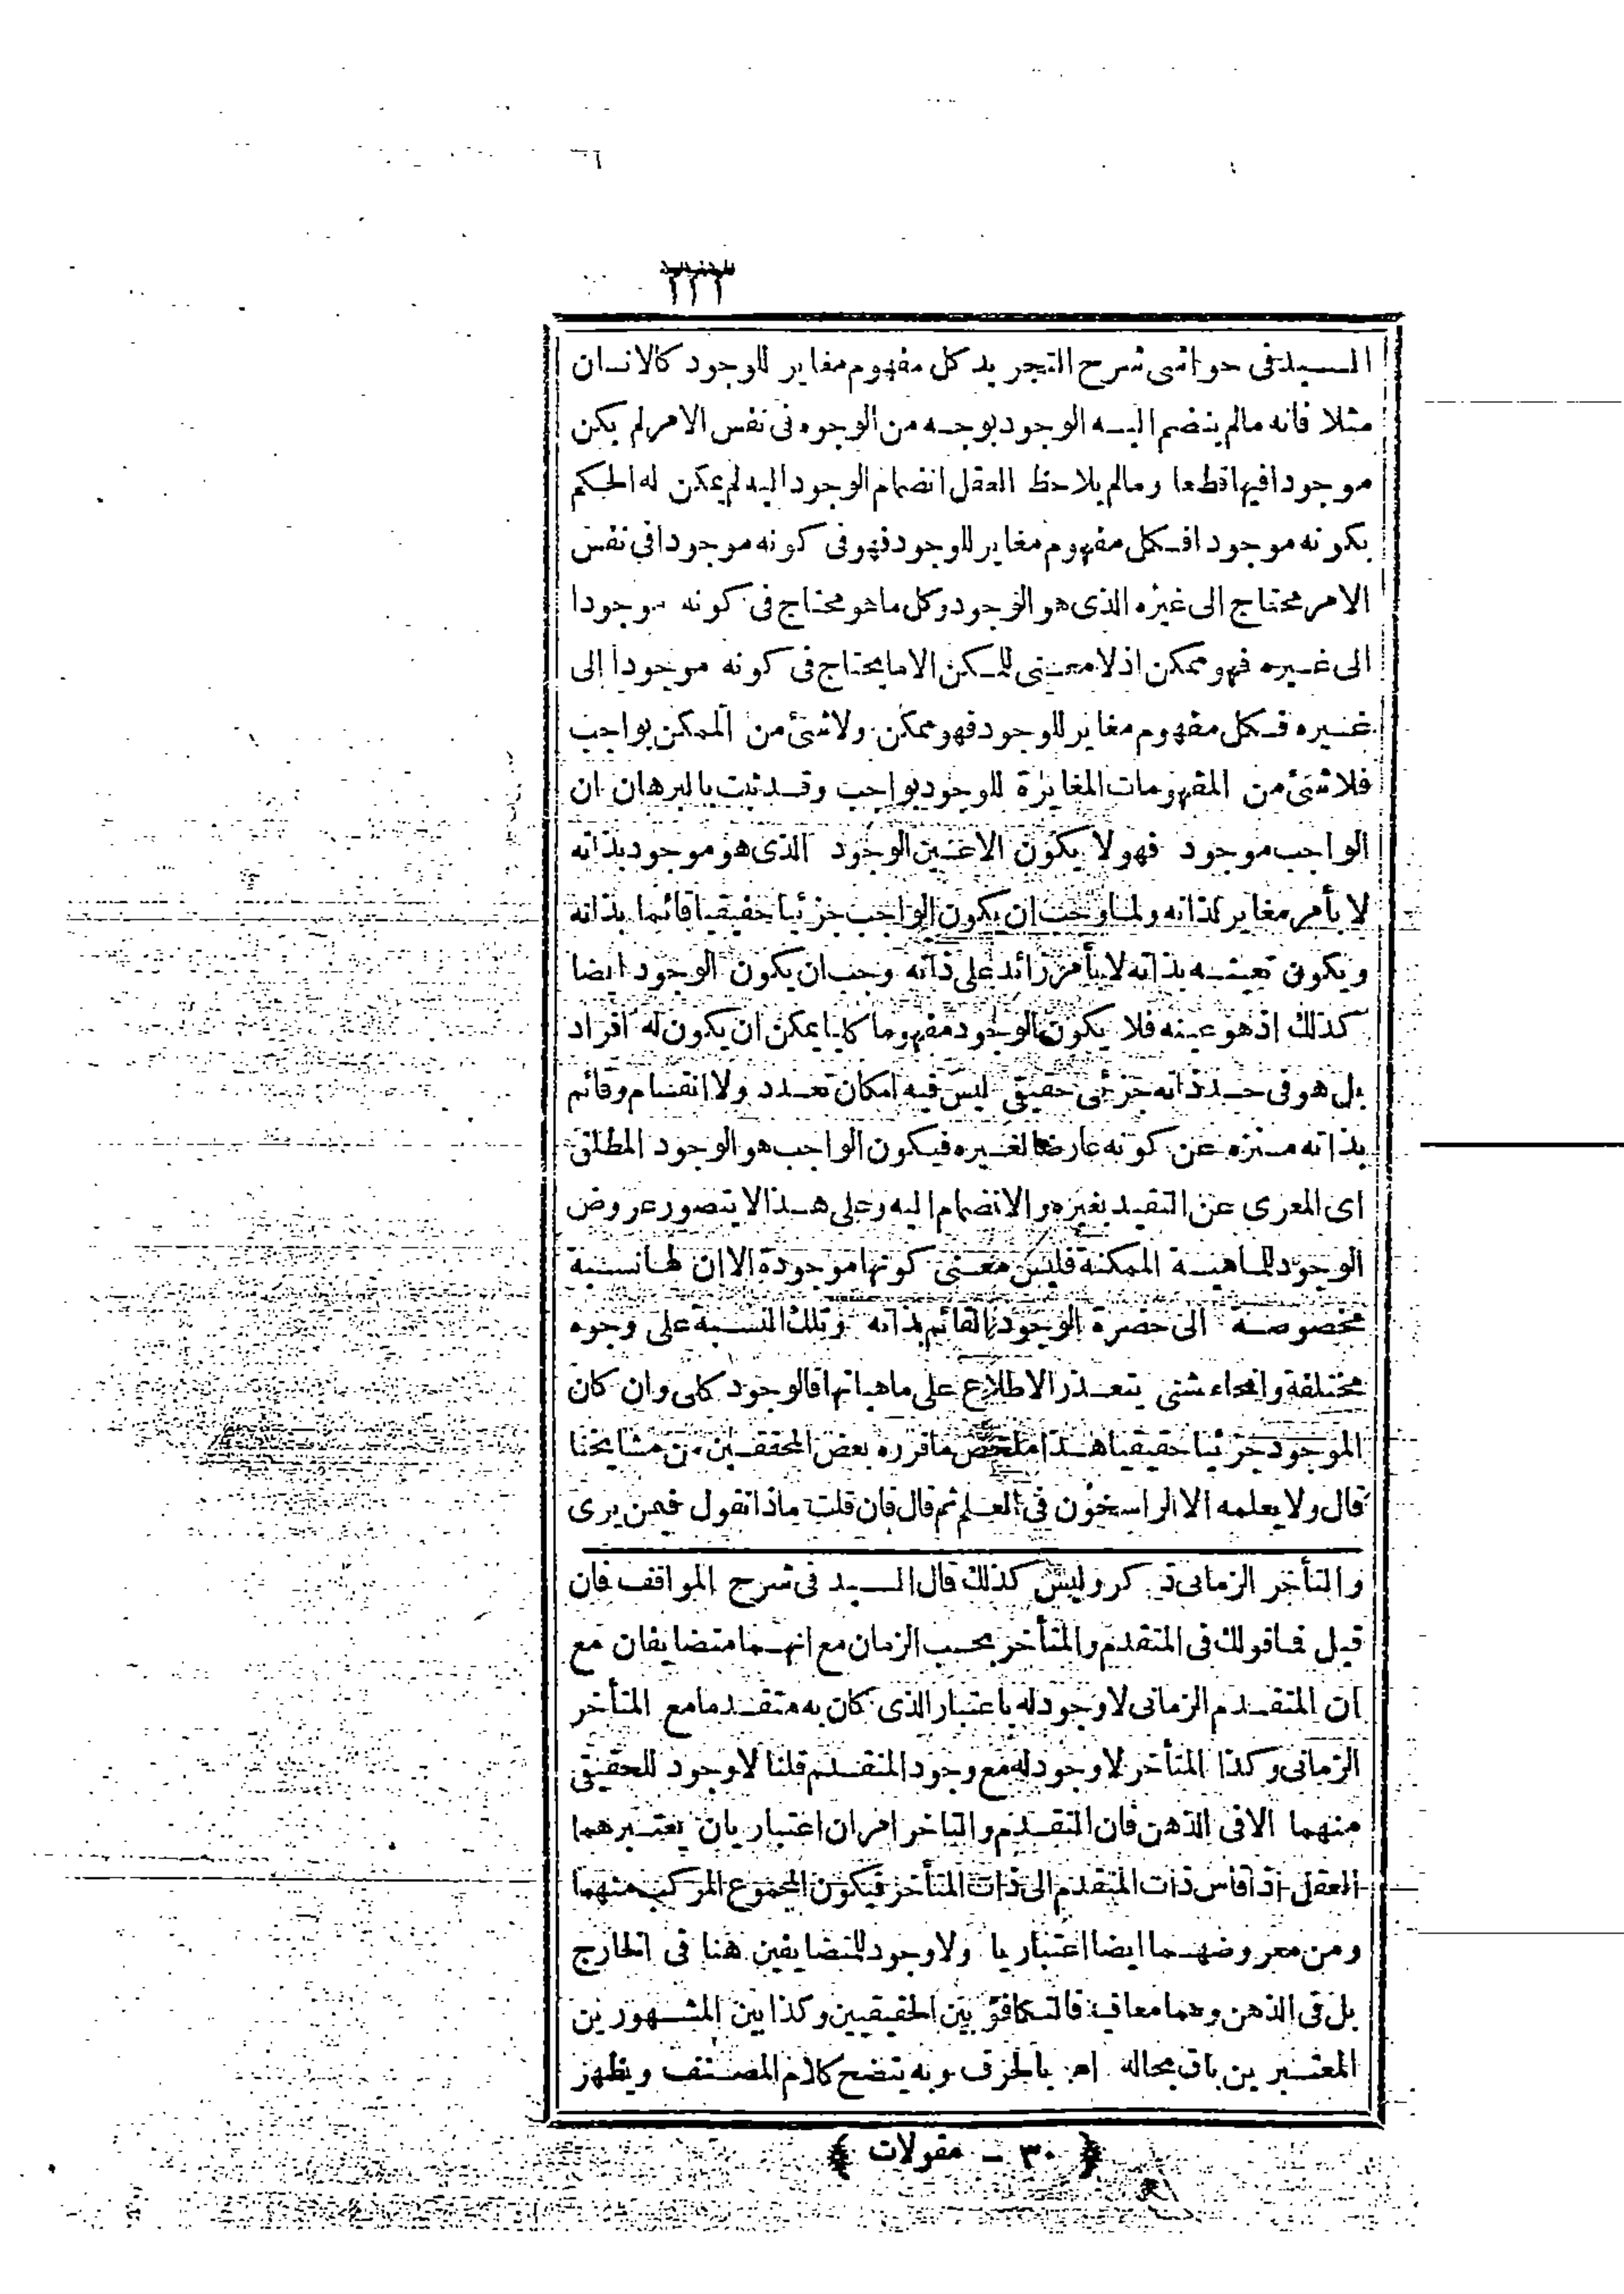 السيد فى حواشى شرح التجريد كل مفهوم مغاير للوجود كالانسان
مثلا فانه مالم ينضم اليه الوجود بوجه من الوجوه فى نفس الامر لم يكن
موجودا فيها قطعا ومالم يلاحظ العقل انضمام الوجود اليه لم يمكن له الحكم
بكونه موجودا فكل مفهوم مغاير للوجود فهو فى كونه موجودا فى نفس
الامر محتاج الى غيره الذى هو الوجود وكل ما هو محتاج فى كونه موجودا
الى غيره فهو ممكن اذ لا معنى للممكن الا ما يحتاج فى كونه موجودا إلى
غيره فكل مفهوم مغاير للوجود فهو ممكن ولا شئ من الممكن بواجب
فلا شئ من المفهومات المغايرة للوجود بواجب وقد ثبت بالبرهان ان
الواجب موجود فهو لا يكون الا عين الوجود الذى هو موجود بذاته
لا بأمر مغاير لذاته ولما وجب ان يكون الواجب جزئيا حقيقيا قائما بذاته
ويكون تعينه بذاته لا بأمر زائد على ذاته وجب ان يكون الوجود ايضا
كذلك اذ هو عينه فلا يكون الوجود مفهوما كليا يمكن ان يكون له افراد
بل هو فى حد ذاته جزئى حقيقى ليس فيه امكان تعدد ولا انقسام وقائم
بذاته منزه عن كونه عارضا لغيره فيكون الواجب هو الوجود المطلق
اى المعرى عن التقيد بغيره والانضمام اليه وعلى هذا لا يتصور عروض
الوجود للماهية الممكنة فليس معنى كونها موجودة الا ان لها نسبة
مخصوصة الى حضرة الوجود القائم بذاته وتلك النسبة على وجوه
مختلفة وانحاء شتى يتعذر الاطلاع على ماهياتها فالوجود كلى وان كان
الموجود جزئيا حقيقيا هذا ملخص ما قرره بعض المحققين من مشايخنا
قال ولا يعلمه الا الراسخون فى العلم ثم قال فان قلت ماذا تقول فيمن يرى
والتأخر الزمانى ذكر وليس كذلك قال السيد فى شرح المواقف فان
قيل فما قولك فى المتقدم والمتأخر بحسب الزمان مع انهما متضايفان مع
ان المتقدم الزمانى لا وجود له باعتبار الذى كان به متقدما مع المتأخر
الزمانى وكذا المتأخر لا وجود له مع وجود المتقدم قلنا لا وجود للحقيقى
منهما الا فى الذهن فان التقدم والتاخر امران اعتباريان يعتبرهما
العقل اذا قاس ذات المتقدم الى ذات المتأخر فيكون المجموع المركب منهما
ومن معروضهما ايضا اعتباريا ولا وجود للمتضايفين هنا فى الخارج
بل فى الذهن وهما معا فيه فالتكافؤ بين الحقيقيين وكذا بين المشهورين
المعتبرين باق بحاله اه بالحرف وبه يتضح كلام المصنف ويظهر
﴿ ٣٠ ـ مقولات ﴾